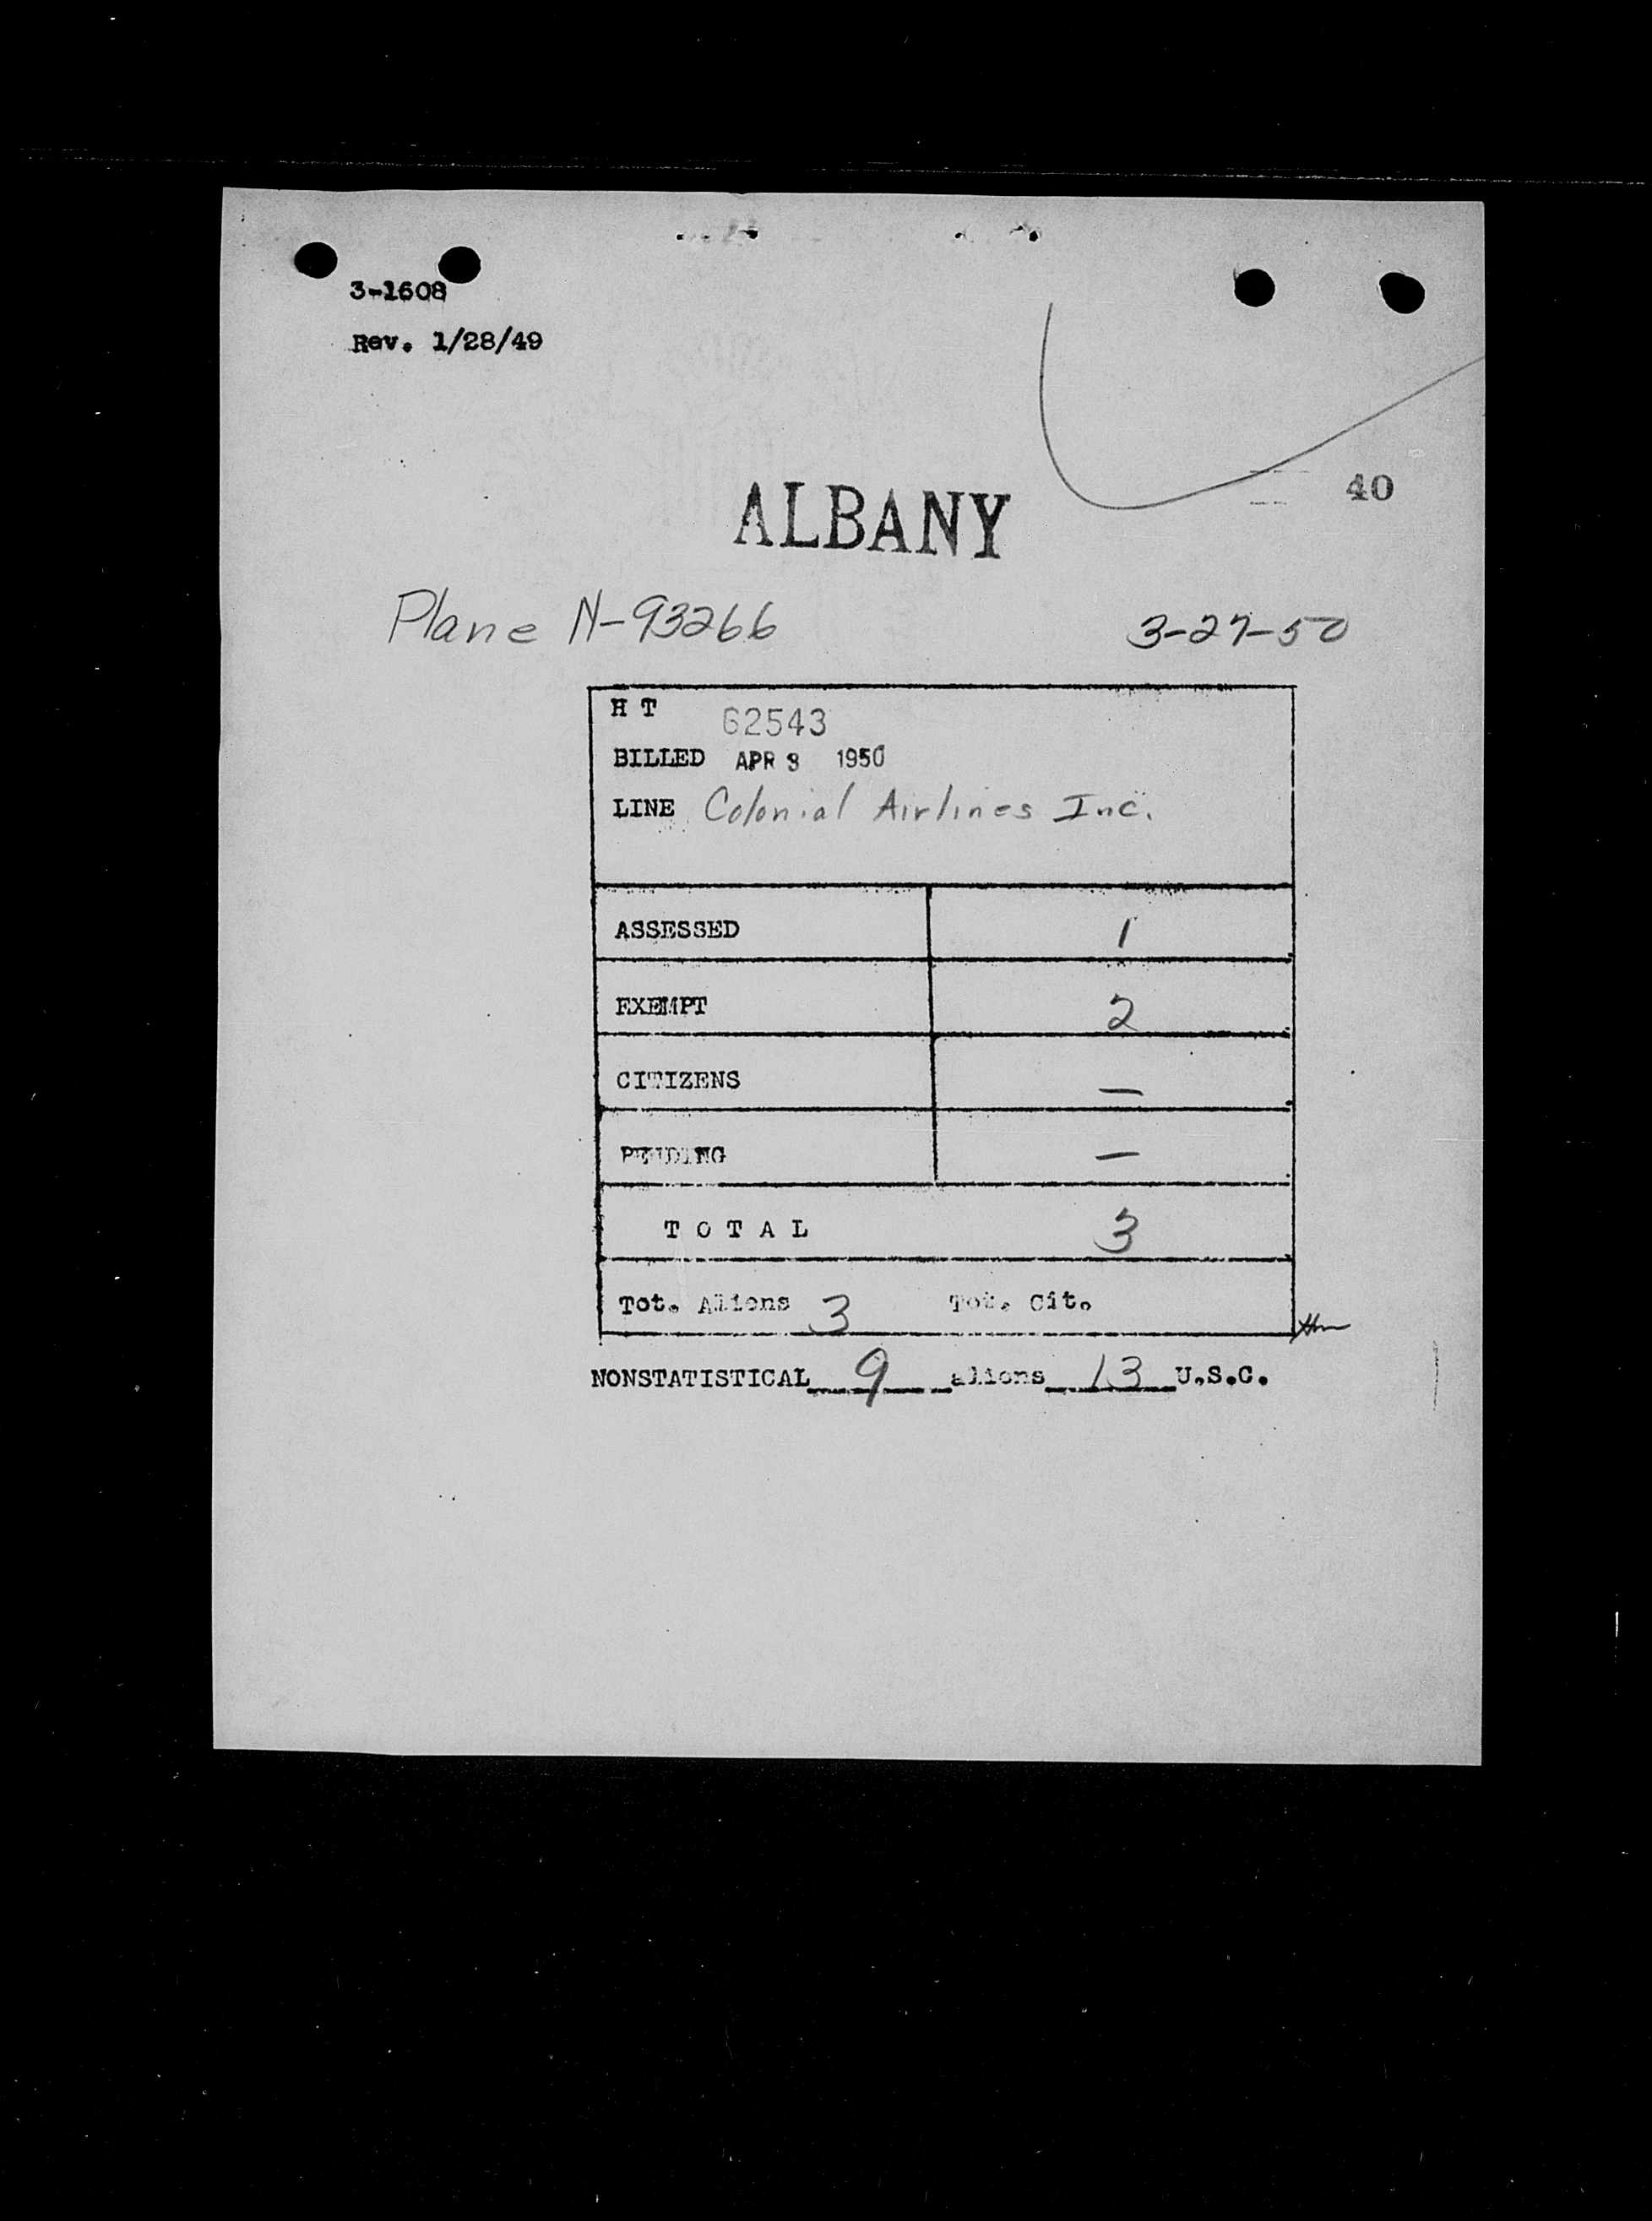 3-1608
Rev. 1/28/49
40
ALBANY
Plane N-93266 3-27-50
H T 62543
BILLED APR 3 1950
LINE Colonial Airlines Inc.
ASSESSED 1
EXEMPT 2
CITIZENS —
PENDING —
T O T A L 3
Tot. Aliens 3 Tot. Cit.
NONSTATISTICAL 9 aliens 13 U.S.C.